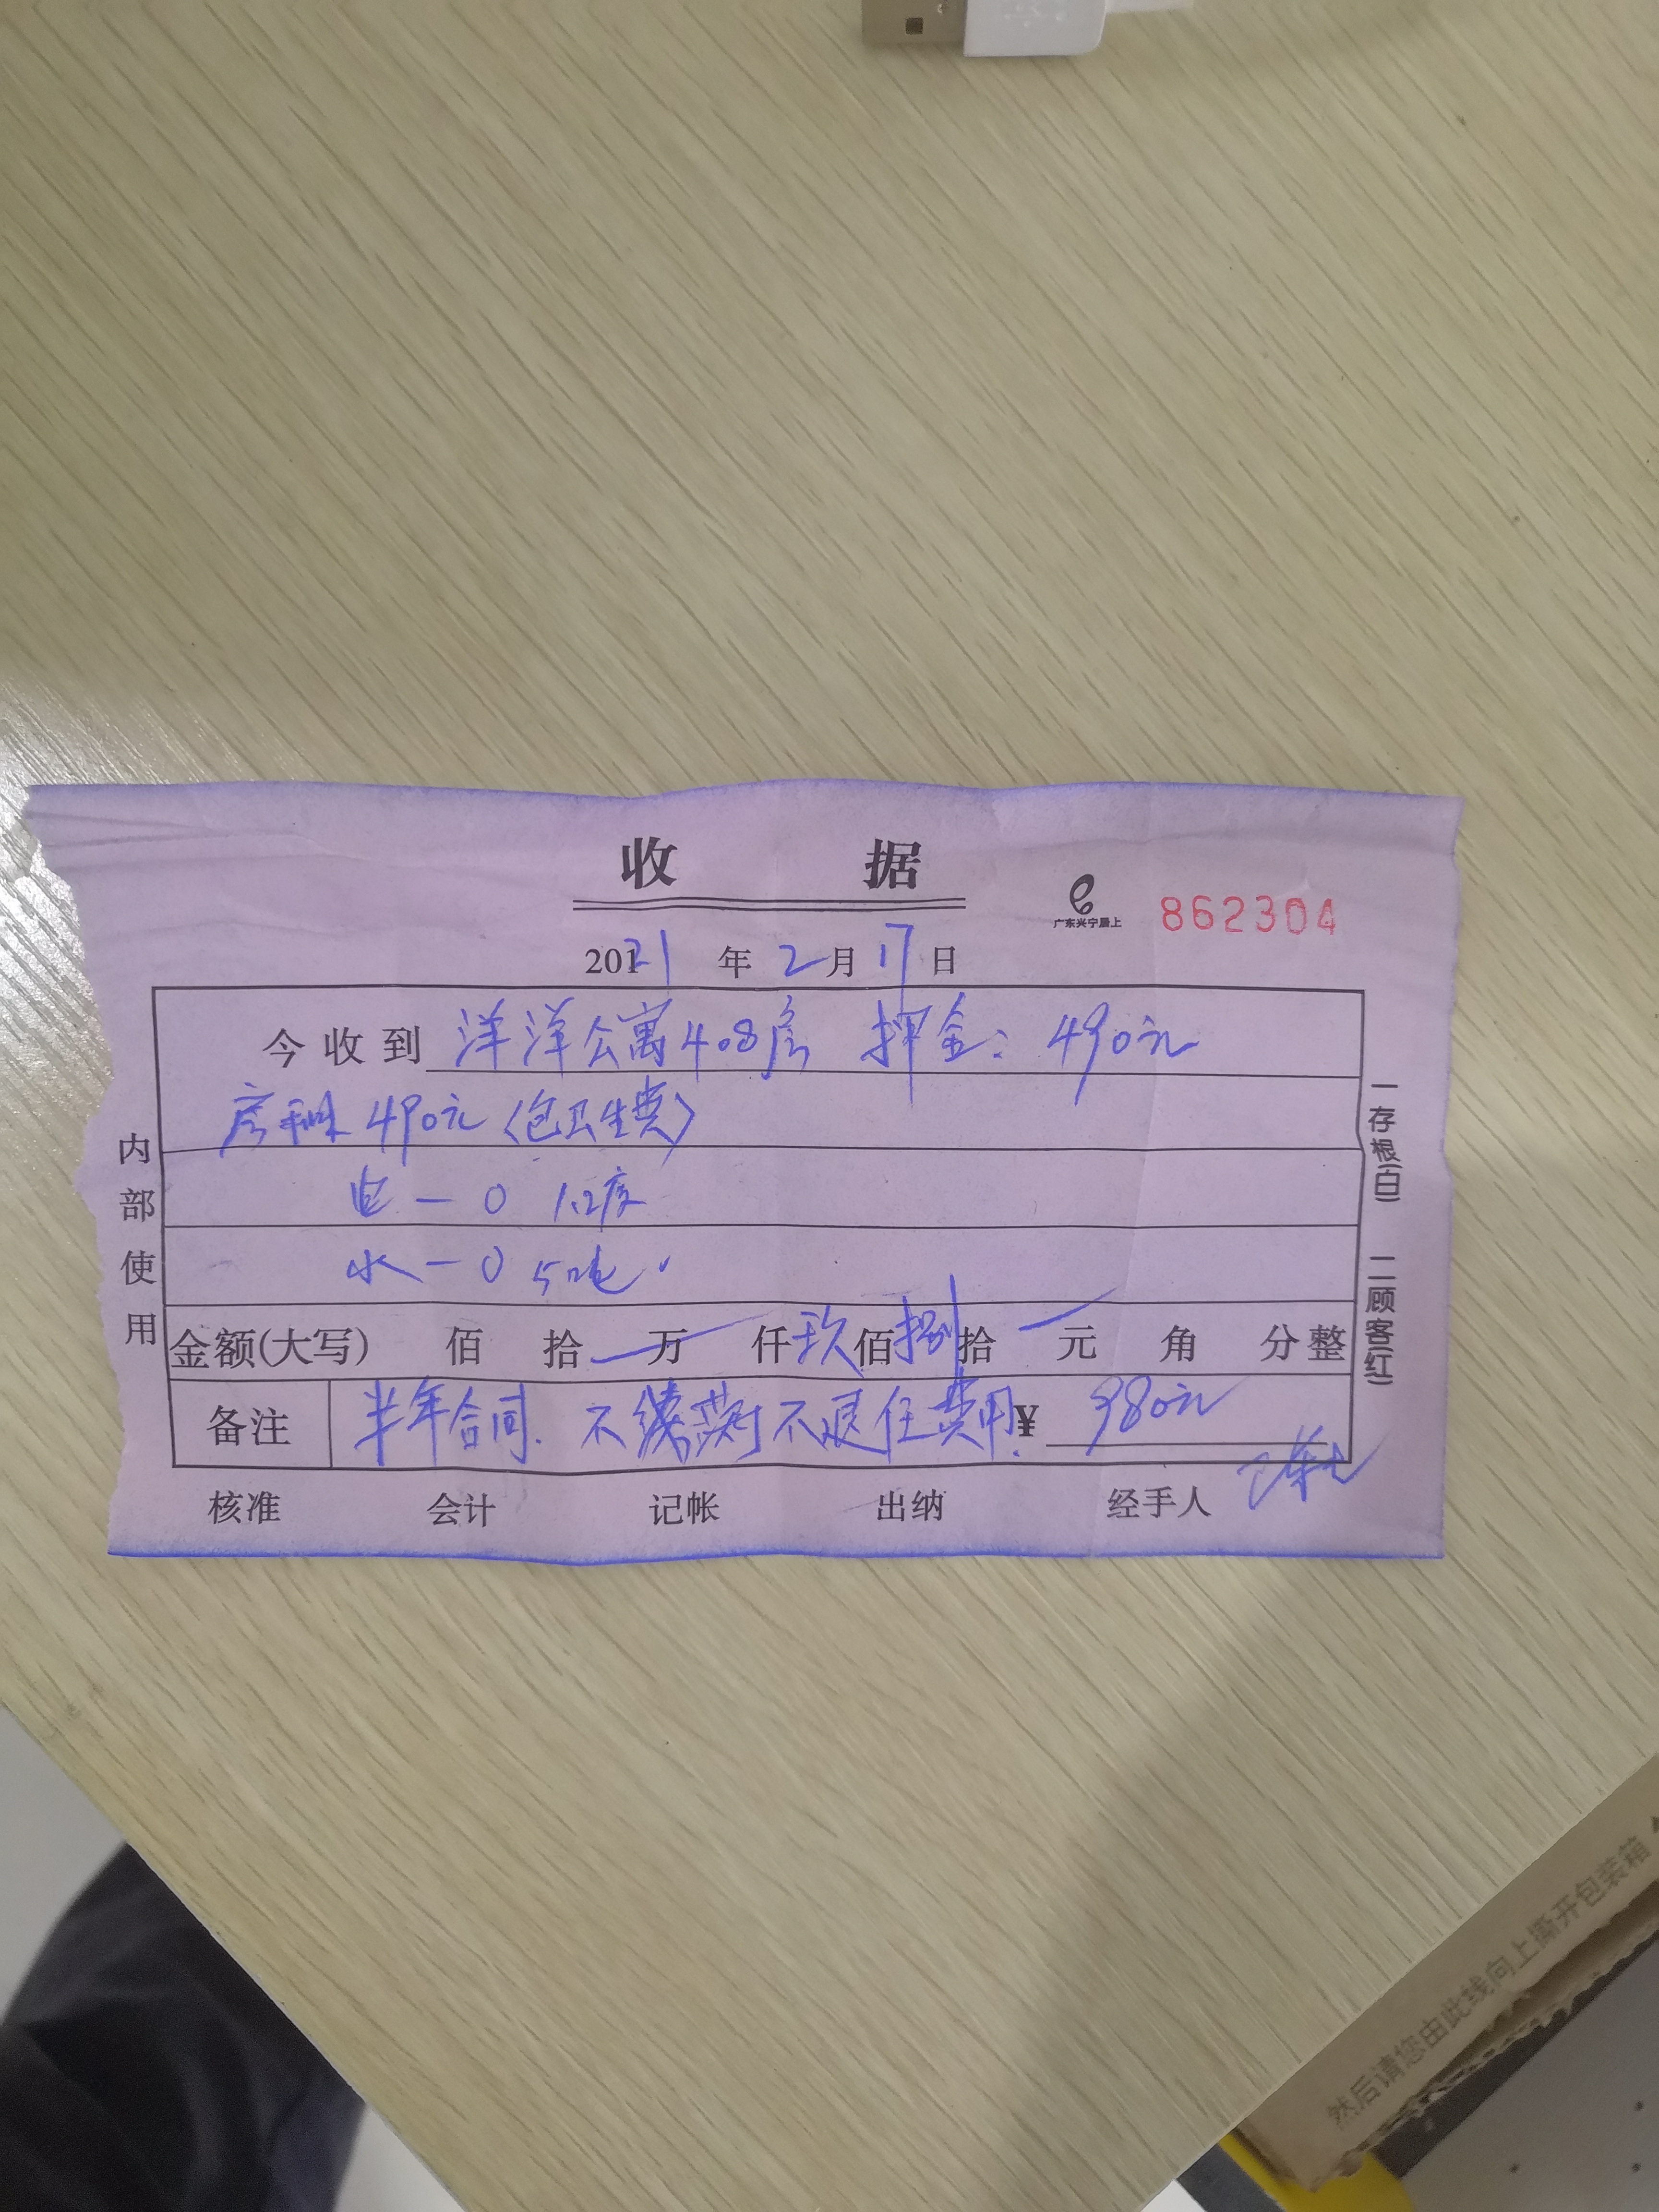 收 据
广东兴宁晨上
862304
2021 年 2 月 17 日
今收到 洋洋公寓408房 押金: 490元
房租 490元 (包卫生费)
电 — 0 1.2度
水 — 0 5吨
金额(大写) 佰 拾 万 仟 玖 佰 捌 拾 元 角 分 整
备注 半年合同. 不续 不退任费用. ¥ 980元
核准 会计 记帐 出纳 经手人
内部使用
一存根(白) 二顾客(红)
然后请您由此线向上撕开包装箱